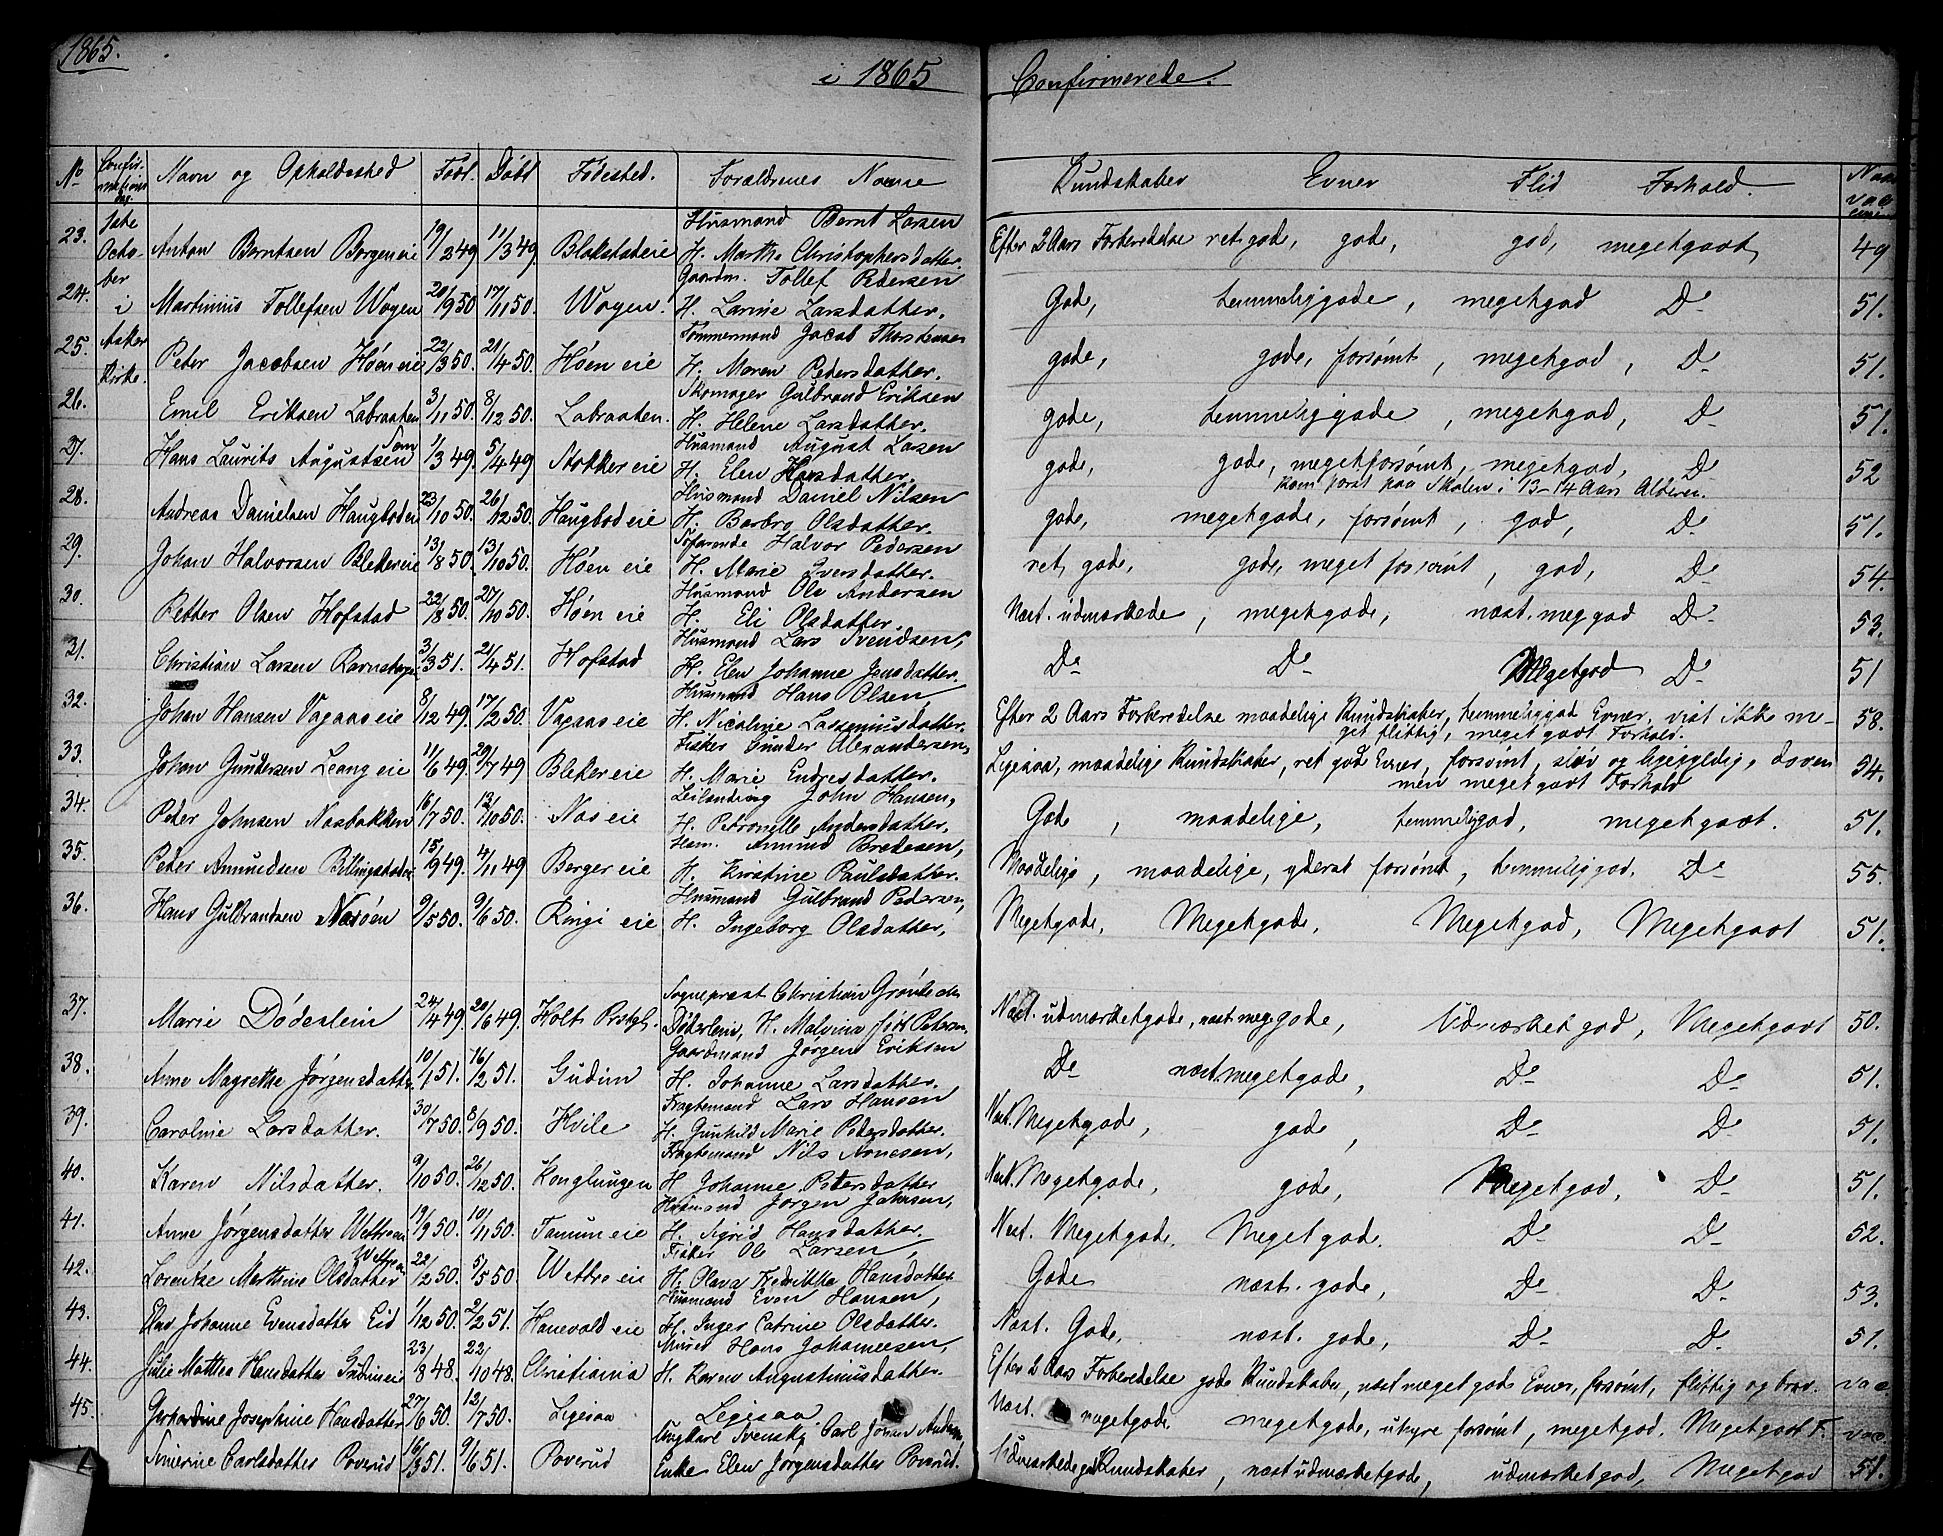 1865.
i 1865 Confirmerede.
No Confir-mations Dag. Navn og Opholdssted Født. Døbt Fødested. Forældrenes Navne Kundskaber Evner Flid Forhold. Naar vac
1ste Octo-ber i Asker Kirke.
Husmand Bernt Larsen
23. Anton Berntsen Borgen eie 19/2 49 11/3 49. Blakstad eie H. Marthe Christophersdatter. Efter 2 Aars Forberedelse ret gode, gode, god, megetgodt 49
Gaardm. Tollef Pedersen
24. Martinius Tollefsen Wøyen 20/9 50 17/11 50. Wøyen. H. Larine Larsdatter. Gode, temmeliggode, megetgod Do 51.
Tømmermand Jacob Thorstensen
25. Peter Jacobsen Høen eie 22/3 50. 21/4 50. Høen eie H. Maren Pedersdatter. gode, gode, forsømt, megetgod, Do 51.
Skomager Gulbrand Eriksen
26. Emil Eriksen Labraaten 3/11 50. 8/12 50. Labraaten. H. Helene Larsdatter. gode, temmeliggode, megetgod, Do 51.
Husmand August Larsen
27. Hans Laurits Augustsen Tom 1/3 49. 5/4 49 Stokker eie H. Elen Hansdatter. gode, gode, megetforsømt, megetgod, Do 52
kom først paa Skolen i 13-14 Aars Alderen.
Husmand Daniel Nilsen
28. Andreas Danielsen Haugboden 23/10 50. 26/12 50. Haugbod eie H. Berbro Olsdatter. gode, megetgode, forsømt, god, Do 51.
Søfarende Halvor Pedersen
29. Johan Halvorsen Bleker eie 13/8 50. 13/10 50. Høen eie H. Marie Iversdatter. ret gode, gode, meget forsømt, god, Do 54.
Husmand Ole Andersen
30. Petter Olsen Hofstad 22/8 50. 27/10 50. Høen eie H. Eli Olsdatter. Næst. udmærkede, megetgode, næst. meg god Do 53.
Husmand Lars Svendsen,
31. Christian Larsen 3/3 51. 21/4 51. Hofstad H. Elen Johanne Jensdatter. Do Do Megetgod Do 51
Husmand Hans Olsen,
32. Johan Hansen Vagaas eie 8/12 49. 17/2 50. Vagaas eie H. Nicoline Lassemiusdatter. Efter 2 Aars Forberedelse maadelige Kundskaber, temmeliggod Evner, vist ikke me- 58.
get flittig, meget godt Forhold.
Fisker Gunder Alexandersen,
33. Johan Gundersen Leang eie 11/6 49. 29/7 49 Bleker eie H. Marie Endresdatter. Ligesaa, maadelige Kundskaber, ret god Evner, forsømt, sløv og ligegyldig, doven 54.
men meget godt Forhold
Leilending John Hansen,
34. Peter Johnsen Næsbakken 16/7 50. 13/10 50. Næs eie H. Petronelle Andersdatter. Gode, maadelige, temmeliggod, megetgodt. 51.
Hsm. Amund Bredesen,
35. Peter Amundsen Billingstaden 15/9 49. 4/11 49 Berger eie H. Kirstine Paulsdatter. Maadelige, maadelige, yderst forsømt, temmeliggod. Do 55.
Husmand Gulbrand Pedersen,
36. Hans Gulbrandsen Næsøen 9/5 50. 9/6 50. Ringi eie H. Ingeborg Olsdatter, Megetgode, Megetgode, Megetgod, Megetgodt 51.
Sognepræst Christian Grønbech
37. Marie Döderlein 24/4 49. 20/6 49. Holt Prstgl. Döderlein, H. Malvina født Petersen, Næst. udmærketgode, næst. meg. gode, Udmærket god, Megetgodt 50.
Gaardmand Jørgen Eriksen
38. Anne Magrethe Jørgensdatter 10/1 51. 16/2 51. Gudim H. Johanne Larsdatter. Do næst. megetgode, Do Do 51.
Fragtemand Lars Hansen
39. Caroline Larsdatter. 30/7 50. 8/9 50. Hvile H. Gunhild Marie Pedersdatter. Næst. Megetgode, gode, Do Do 51.
Fragtemand Nils Aonesen,
40. Karen Nilsdatter. 9/10 50. 26/12 50. Konglungen H. Johanne Petersdatter Næst. Megetgode, gode, Megetgod, Do 51.
Husmand Jørgen Johnsen,
41. Anne Jørgensdatter Wettre 19/9 50. 10/11 50. Tanum eie H. Sigrid Hansdatter. Næst. Megetgode. Meget gode. Do Do 52.
Fisker Ole Larsen,
42. Lorentze Marthine Olsdatter Wettre 22/2 50. 5/5 50. Wettre eie H. Olava Fredrikke Hansdatter Gode næst. gode, Do Do 53.
Husmand Even Hansen,
43. Else Johanne Evensdatter Eid 1/12 50. 2/2 51. Hanevold eie H. Inger Catrine Olsdatter. Næst. Gode, næst. gode, Do Do 51.
Murer Hans Johannesen,
44. Julie Mathea Hansdatter Gudim eie 23/8 48. 22/10 48. Christiania H. Karen Augustinusdatter. Efter 2 Aars Forberedelse gode Kundskaber, næst meget gode Evner, forsømt, flittig og brav. vac
45. Gerhardine Josephine Hansdatter 27/6 50. 13/7 50. Ligesaa Ligesaa. Næst. megetgode. megetgode, uhyre forsømt, megetgod. Megetgodt F. vac
Ungkarl Svensk, Carl Johan Andersen
Simerine Carlsdatter Poverud 16/3 51. 9/6 51. Poverud Enke Elen Jørgensdatter Poverud. Udmærkede gode Kundskaber, næst udmærketgode, udmærketgod, Megetgod 51.